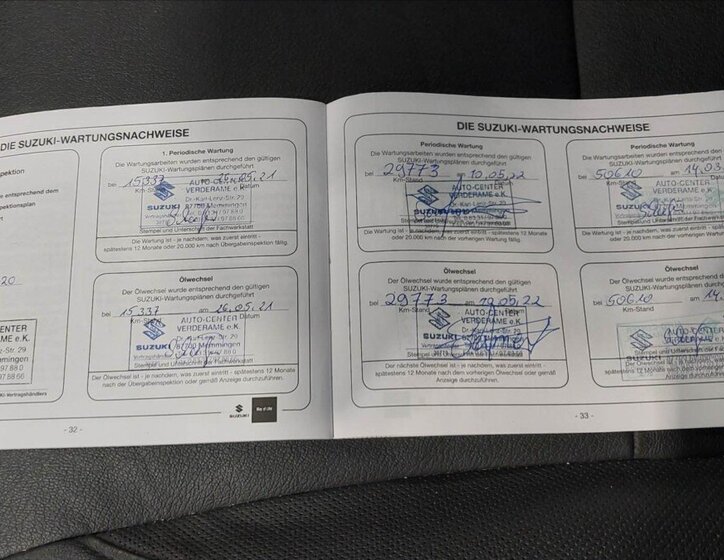 DIE SUZUKI-WARTUNGSNACHWEISE
1. Periodische Wartung
Die Wartungsarbeiten wurden entsprechend den gültigen
SUZUKI-Wartungsplänen durchgeführt
bei 15337 am .05.21
Km-Stand Datum
AUTO-CENTER
VERDERAME e.K.
Dr.-Karl-Lenz-Str. 29
SUZUKI 87700 Memmingen
Stempel und Unterschrift der Fachwerkstatt
Die Wartung ist - je nachdem, was zuerst eintritt -
spätestens 12 Monate oder 20.000 km nach Übergabeinspektion fällig.
Ölwechsel
Der Ölwechsel wurde entsprechend den gültigen
SUZUKI-Wartungsplänen durchgeführt
bei 15337 am 26.05.21
Km-Stand Datum
AUTO-CENTER
VERDERAME e.K.
Dr.-Karl-Lenz-Str. 29
SUZUKI 87700 Memmingen
Stempel und Unterschrift der Fachwerkstatt
Der Ölwechsel ist - je nachdem, was zuerst eintritt - spätestens 12 Monate
nach der Übergabeinspektion oder gemäß Anzeige durchzuführen.
SUZUKI Way of Life!
- 32 -
pektion
20
ENTER
ME e.K.
z-Str. 29
mingen
97 88 0
97 88 66
KI-Vertragshändlers
DIE SUZUKI-WARTUNGSNACHWEISE
Periodische Wartung
Die Wartungsarbeiten wurden entsprechend den gültigen
SUZUKI-Wartungsplänen durchgeführt
bei 29773 am 10.05.22
AUTO-CENTER
VERDERAME e.K.
Dr.-Karl-Lenz-Str. 29
Stempel und Unterschrift der Fachwerkstatt
Die Wartung ist - je nachdem, was zuerst eintritt - spätestens 12 Monate
oder 20.000 km nach der vorherigen Wartung fällig.
Ölwechsel
Der Ölwechsel wurde entsprechend den gültigen
SUZUKI-Wartungsplänen durchgeführt
bei 29773 am 10.05.22
Km-Stand Datum
AUTO-CENTER
VERDERAME e.K.
SUZUKI
Stempel und Unterschrift der Fachwerkstatt
Der nächste Ölwechsel ist - je nachdem, was zuerst eintritt -
spätestens 12 Monate nach dem vorherigen Ölwechsel oder gemäß
Anzeige durchzuführen.
Periodische Wartung
Die Wartungsarbeiten wurden entsprechend
SUZUKI-Wartungsplänen durchgeführt
bei 50610 am 14.03
Km-Stand
AUTO-CENTER
VERDERAME
SUZUKI
Stempel und Unterschrift der
Die Wartung ist - je nachdem, was zuerst eintritt
oder 20.000 km nach der vorherigen Wartung
Ölwechsel
Der Ölwechsel wurde entsprechend den gültigen
SUZUKI-Wartungsplänen durchgeführt
bei 50610 am 14.
Km-Stand
AUTO-CENTER
Stempel und Unterschrift der
Der nächste Ölwechsel ist - je nachdem, was
spätestens 12 Monate nach dem vorherigen
Anzeige durchzuführen.
- 33 -